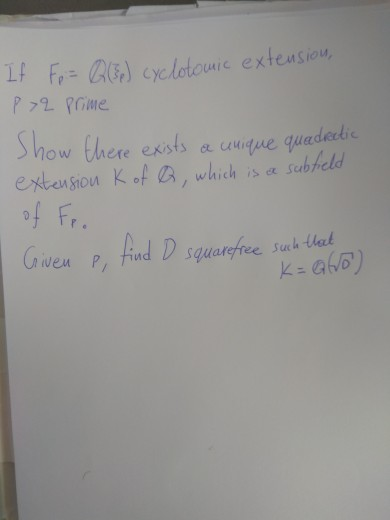 If Fₚ = ℚ(ξₚ) cyclotomic extension,
p > 2 prime
Show there exists a unique quadratic
extension K of ℚ, which is a subfield
of Fₚ.
Given p, find D squarefree such that
K = ℚ(√D)